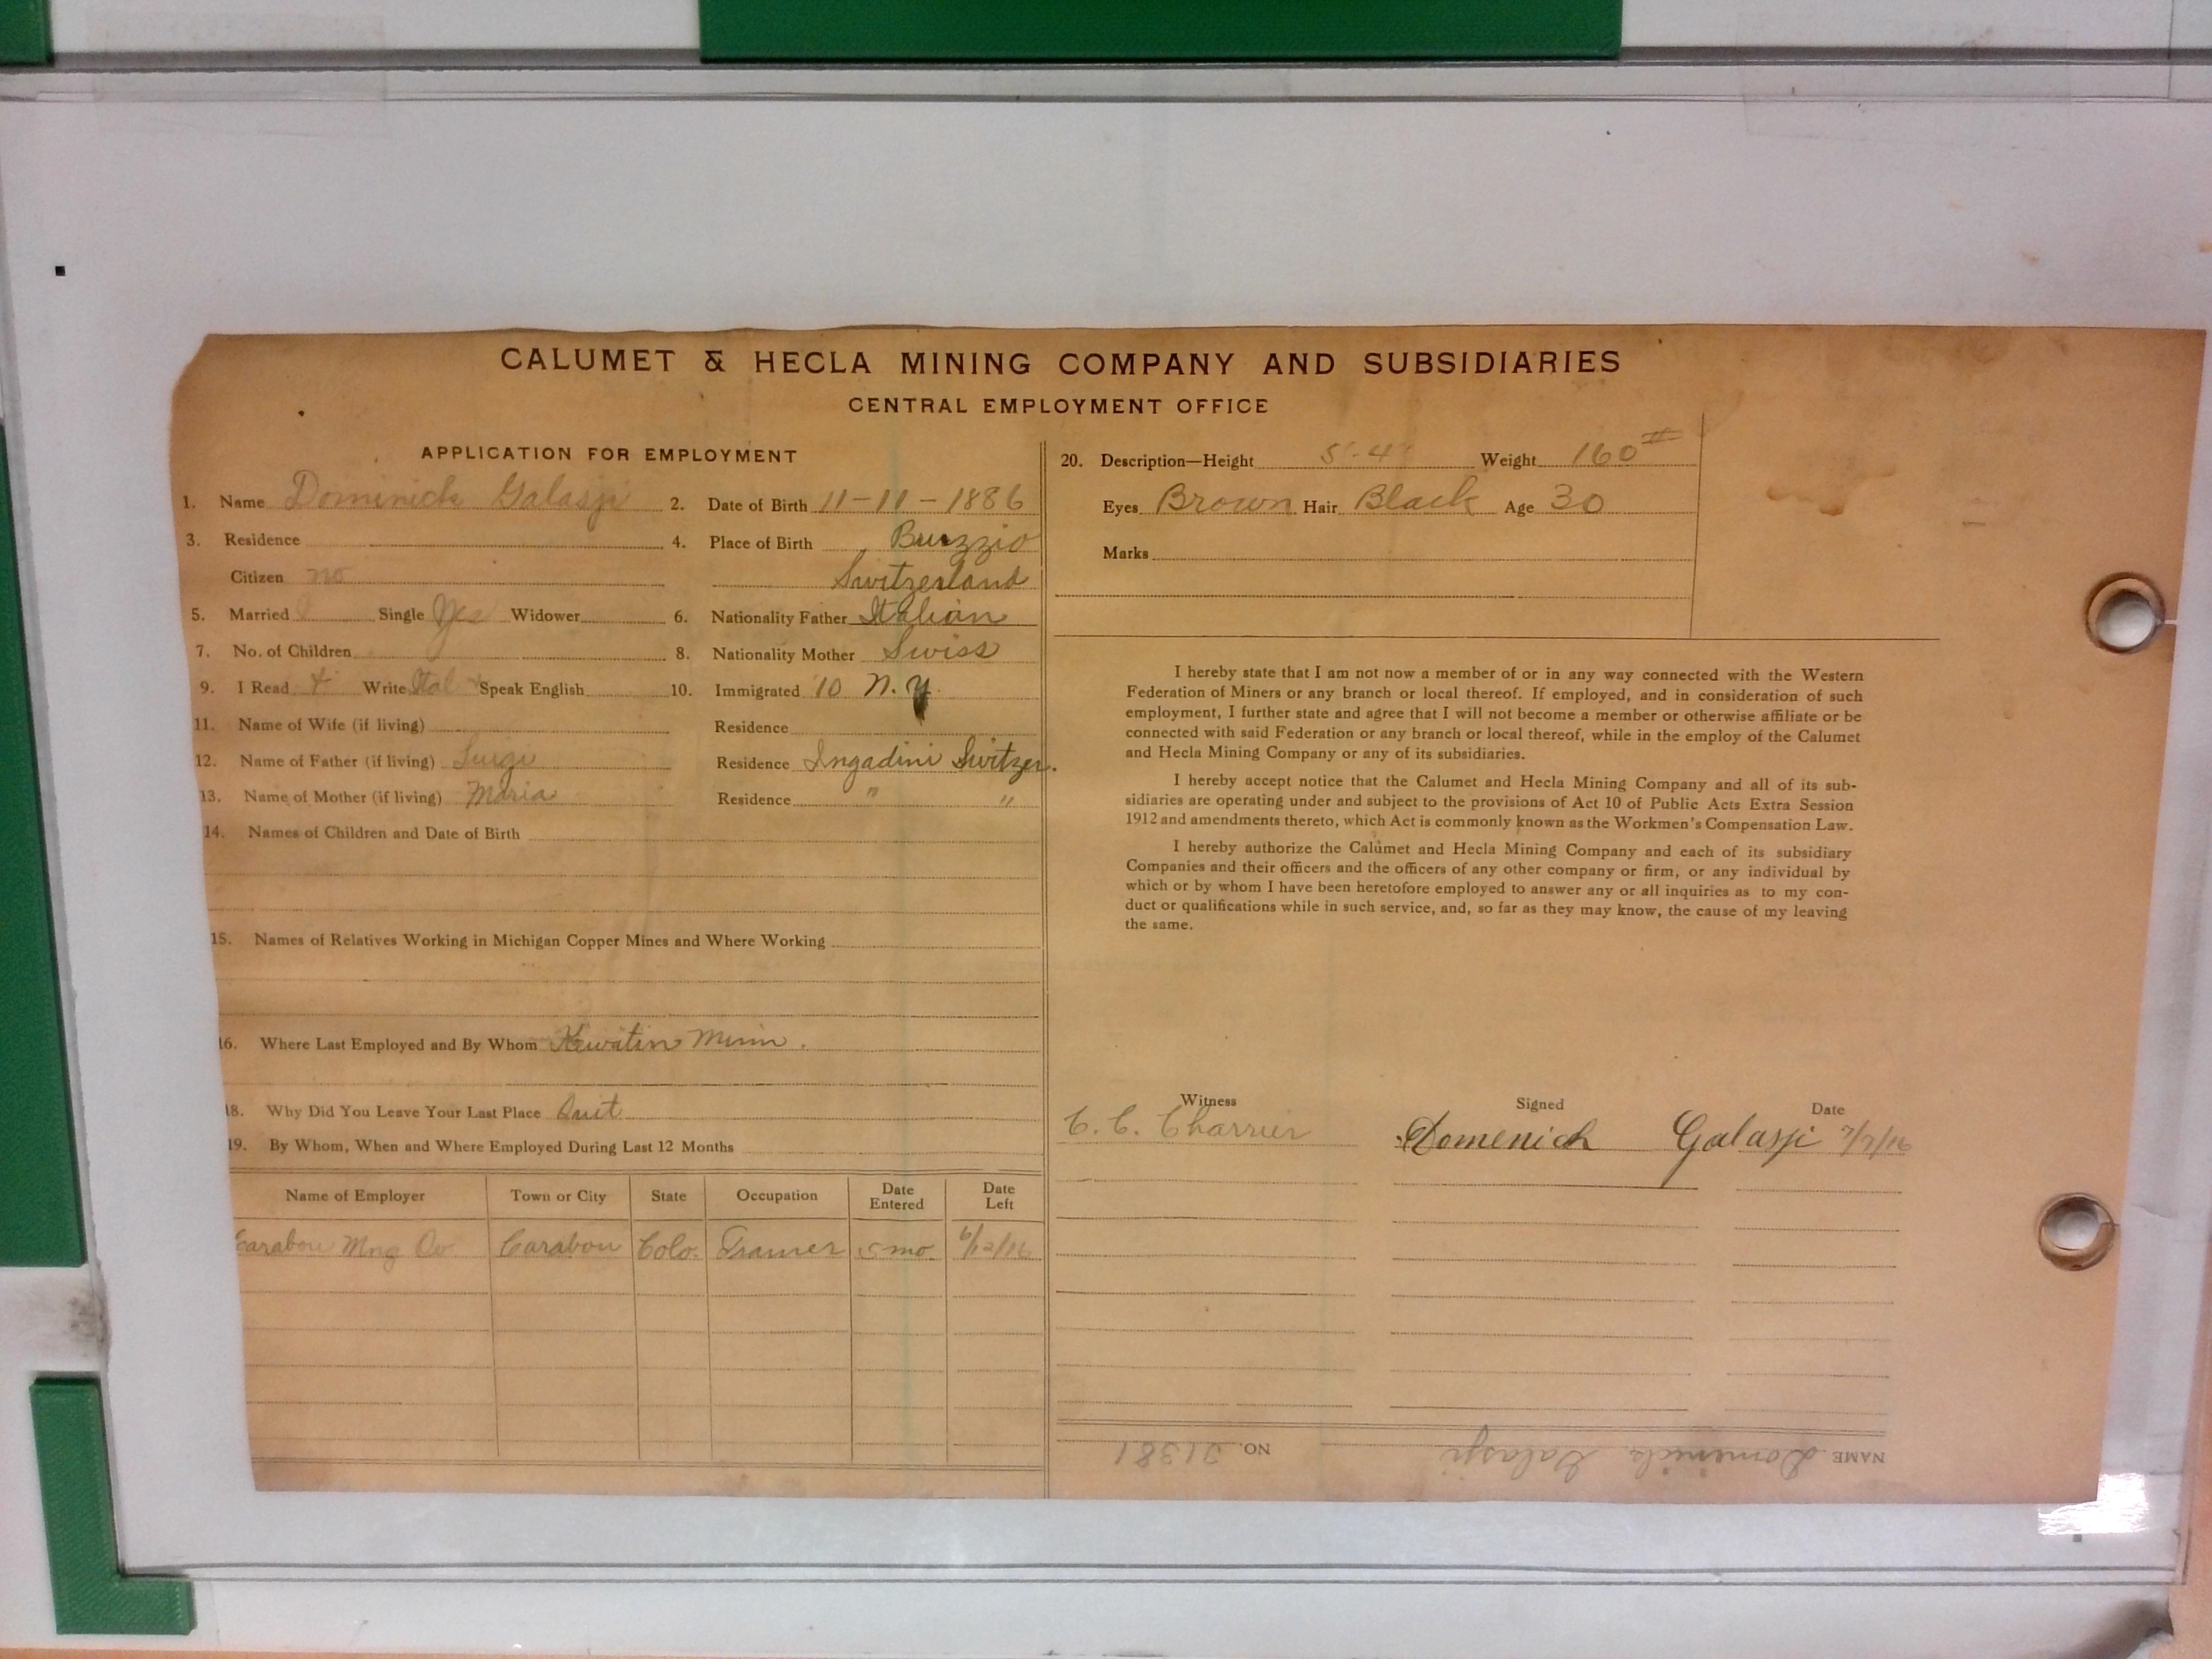 CALUMET & HECLA MINING COMPANY AND SUBSIDIARIES
CENTRAL EMPLOYMENT OFFICE
APPLICATION FOR EMPLOYMENT
1. Name Dominick Galaspi 2. Date of Birth 11-11-1886
3. Residence 4. Place of Birth Buzzio
Citizen no Switzerland
5. Married Single Yes Widower 6. Nationality Father Italian
7. No. of Children 8. Nationality Mother Swiss
9. I Read + Write Ital Speak English 10. Immigrated '10 N.Y.
11. Name of Wife (if living) Residence
12. Name of Father (if living) Luigi Residence Ingadini Switzer.
13. Name of Mother (if living) Maria Residence " "
14. Names of Children and Date of Birth
15. Names of Relatives Working in Michigan Copper Mines and Where Working
16. Where Last Employed and By Whom Kewatin Minn.
18. Why Did You Leave Your Last Place Quit
19. By Whom, When and Where Employed During Last 12 Months
Name of Employer Town or City State Occupation Date Entered Date Left
Carabou Mng Co Carabou Colo. Tramer 5 mo. 6/12/16
20. Description—Height 5'-4" Weight 160#
Eyes Brown Hair Black Age 30
Marks
I hereby state that I am not now a member of or in any way connected with the Western
Federation of Miners or any branch or local thereof. If employed, and in consideration of such
employment, I further state and agree that I will not become a member or otherwise affiliate or be
connected with said Federation or any branch or local thereof, while in the employ of the Calumet
and Hecla Mining Company or any of its subsidiaries.
I hereby accept notice that the Calumet and Hecla Mining Company and all of its sub-
sidiaries are operating under and subject to the provisions of Act 10 of Public Acts Extra Session
1912 and amendments thereto, which Act is commonly known as the Workmen's Compensation Law.
I hereby authorize the Calumet and Hecla Mining Company and each of its subsidiary
Companies and their officers and the officers of any other company or firm, or any individual by
which or by whom I have been heretofore employed to answer any or all inquiries as to my con-
duct or qualifications while in such service, and, so far as they may know, the cause of my leaving
the same.
Witness Signed Date
C. C. Charrier Domenick Galaspi 7/7/16
NAME Domenick Galaspi NO. 21381